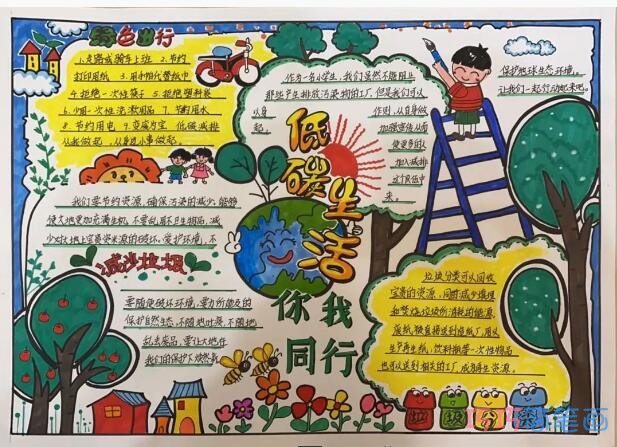 绿色出行
1.走路或骑车上班 2.节约
打印用纸 3.用布袋
4.拒绝一次性筷子 5.拒绝塑料袋
6.少用一次性洗漱用品 7.节约用水
8.节约用电 9.变废为宝 低碳减排
从我做起，从身边小事做起。
作为一名小学生，我们虽然不能阻止
那些产生排放污染物的工厂，但是我们可以
从自
起。
作则，从自身做
加强宣传从而
使更多的人
加入减排
这个队伍中
来。
保护地球生态环境，
让我们一起行动起来吧。
低碳生活
我们要节约资源，确保污染的减少，能够
使大地更加充满生机，不要乱
少对土地上宝贵资源的破坏，爱护环境，不
减少垃圾
要随
保护自然生态，不随地吐痰，不随地
乱丢废品，要让大地在
我们的保护下焕然新
你我
同行
垃圾分类可以回收
宝贵的资源，同时减少填埋
和焚烧垃圾所消耗的能源，
废纸被直接送到造纸厂，用以
生产再生纸，饮料瓶等一次性物品
也可以送到相关的工厂，成为再生资源。